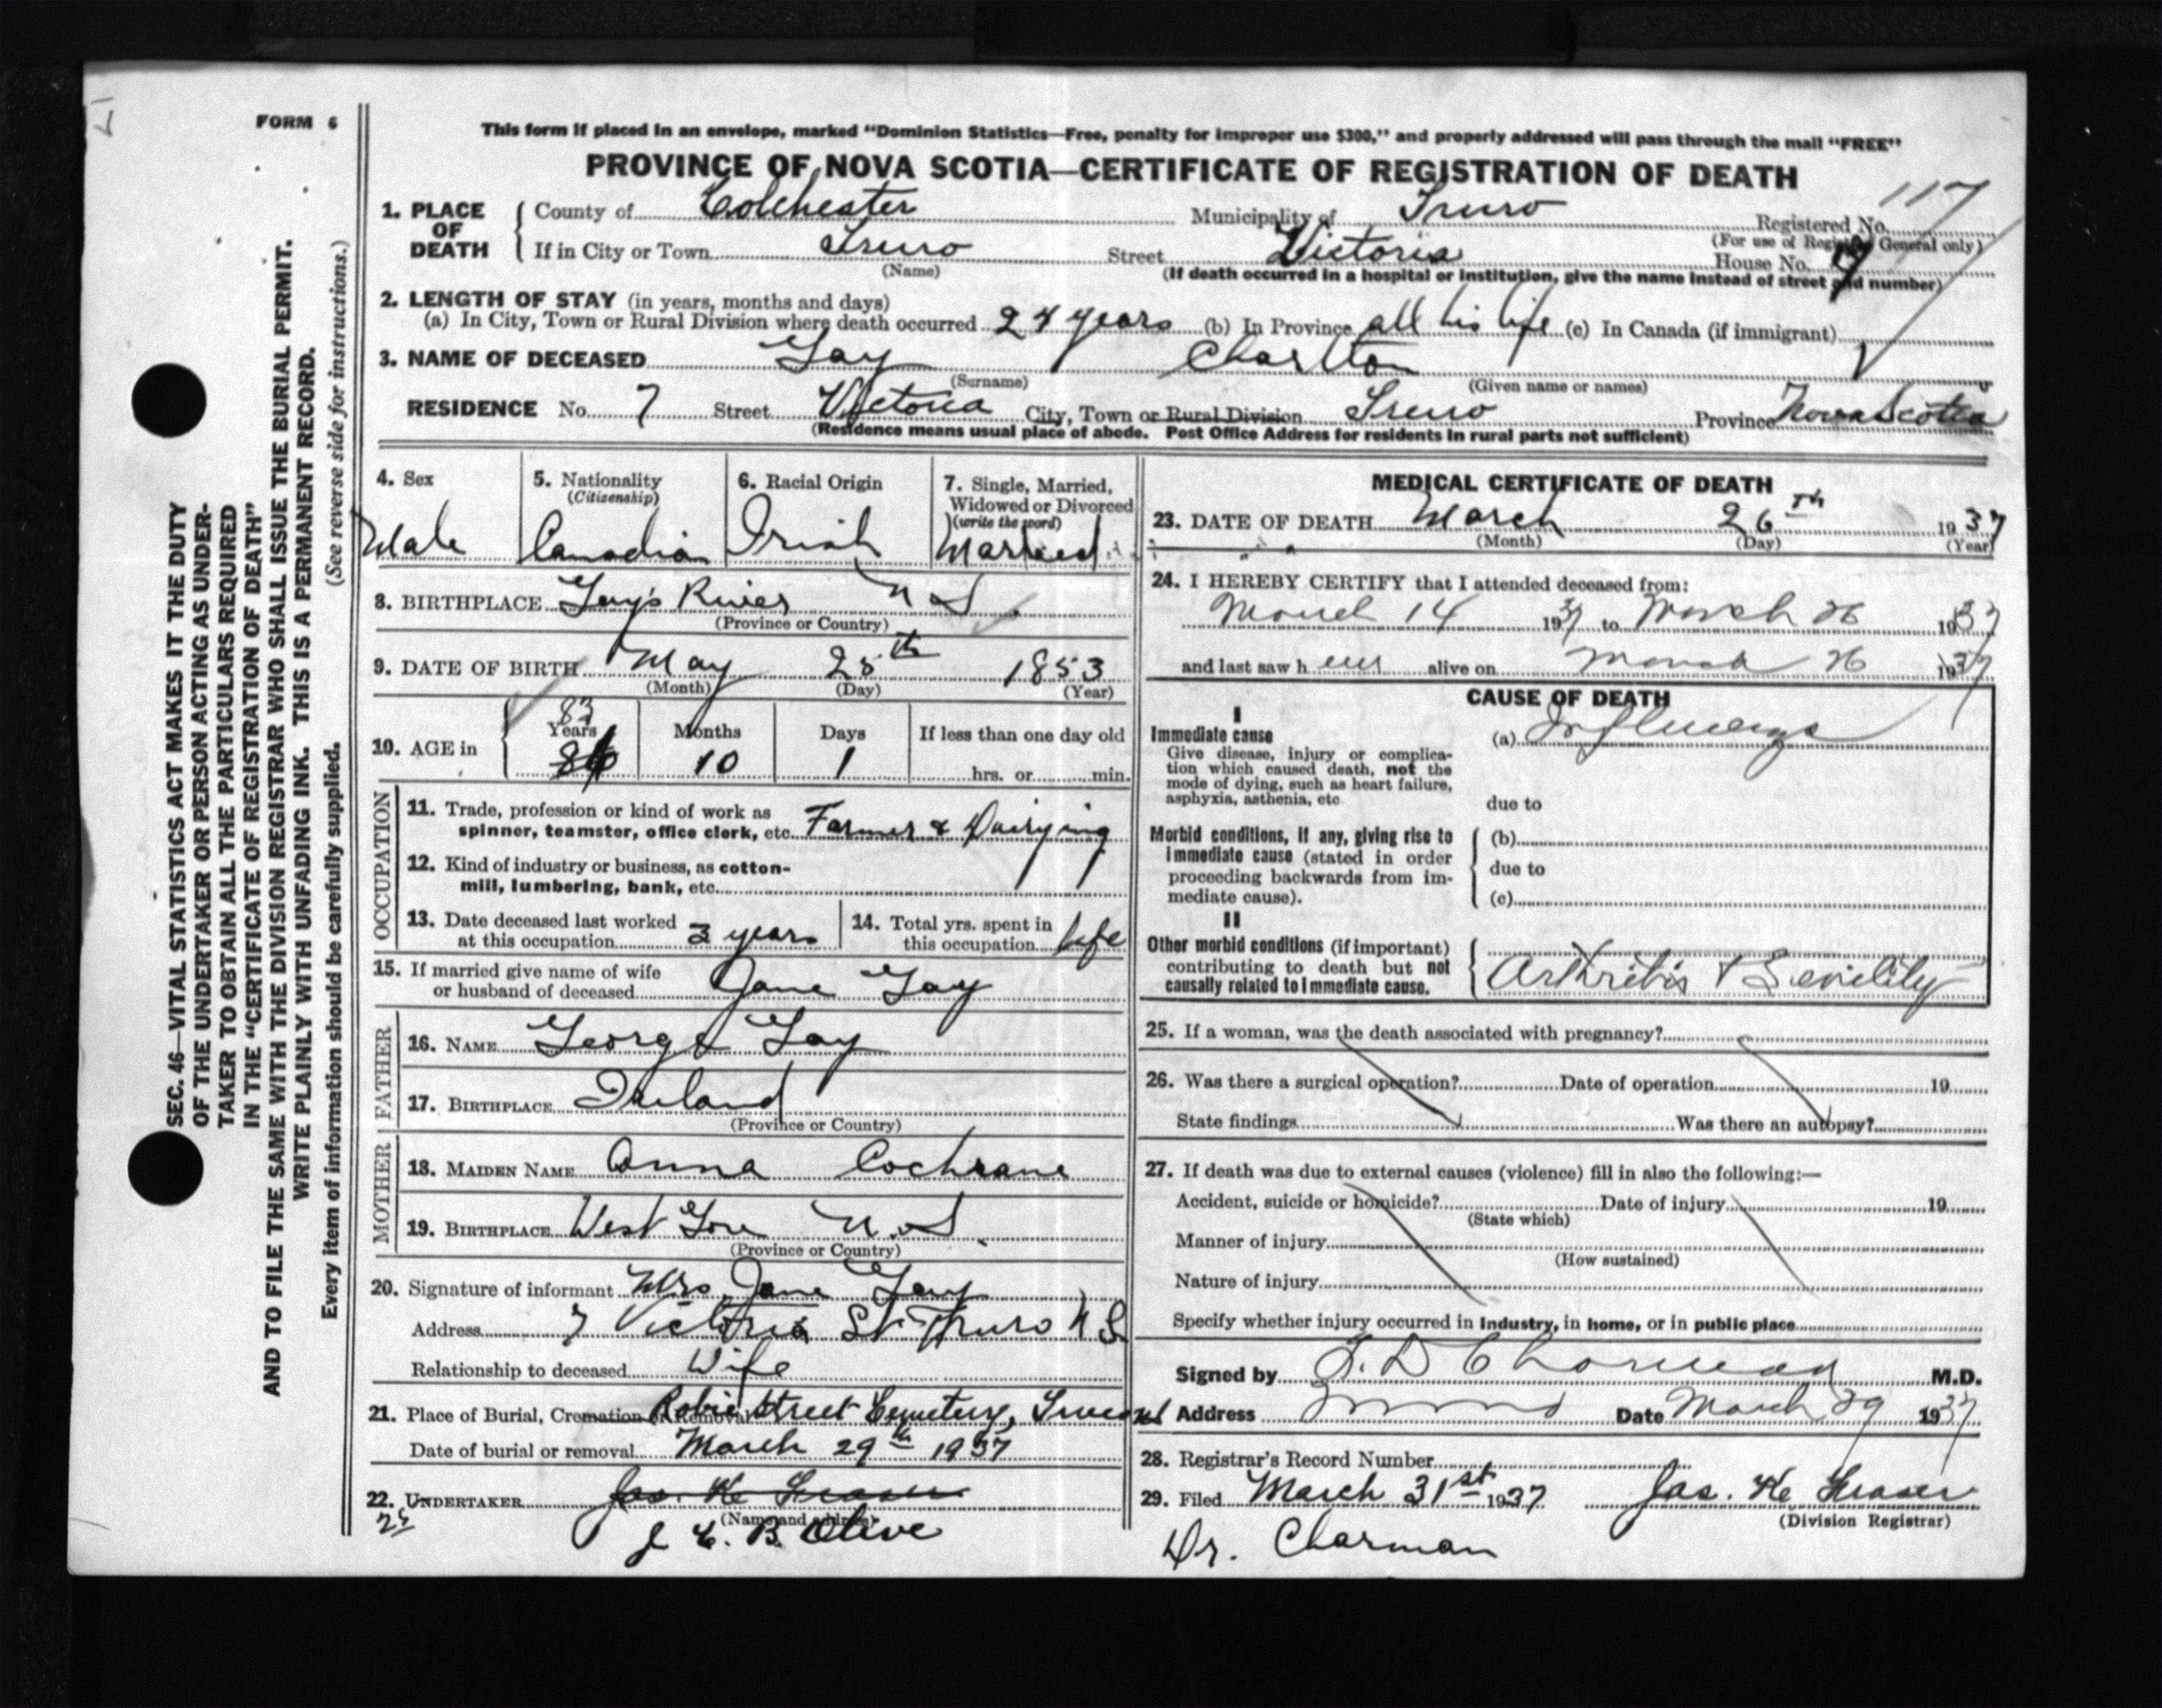 FORM 6
This form if placed in an envelope, marked "Dominion Statistics—Free, penalty for improper use $300," and properly addressed will pass through the mail "FREE"
PROVINCE OF NOVA SCOTIA—CERTIFICATE OF REGISTRATION OF DEATH
117
1. PLACE OF DEATH
County of Colchester Municipality of Truro Registered No.
(For use of Registrar General only)
If in City or Town Truro Street Victoria House No.
(Name)
(If death occurred in a hospital or institution, give the name instead of street and number)
2. LENGTH OF STAY (in years, months and days)
(a) In City, Town or Rural Division where death occurred 24 years (b) In Province all his life (c) In Canada (if immigrant)
3. NAME OF DECEASED Gay Charlton
(Surname) (Given name or names)
RESIDENCE No. 7 Street Victoria City, Town or Rural Division Truro Province Nova Scotia
(Residence means usual place of abode. Post Office Address for residents in rural parts not sufficient)
4. Sex
Male
5. Nationality
(Citizenship)
Canadian
6. Racial Origin
Irish
7. Single, Married,
Widowed or Divorced
(write the word)
Married
8. BIRTHPLACE Gay's River N S.
(Province or Country)
9. DATE OF BIRTH May 25th 1853
(Month) (Day) (Year)
83
10. AGE in Years Months Days If less than one day old
10 1 hrs. or min.
OCCUPATION
11. Trade, profession or kind of work as
spinner, teamster, office clerk, etc. Farmer & Dairying
12. Kind of industry or business, as cotton-
mill, lumbering, bank, etc.
13. Date deceased last worked
at this occupation 3 years
14. Total yrs. spent in
this occupation life
15. If married give name of wife
or husband of deceased Jane Gay
FATHER
16. NAME George Gay
17. BIRTHPLACE Ireland
(Province or Country)
MOTHER
18. MAIDEN NAME Anna Cochrane
19. BIRTHPLACE West Gore N.S.
(Province or Country)
20. Signature of informant Mrs Jane Gay
Address 7 Victoria St Truro N S
Relationship to deceased Wife
21. Place of Burial, Cremation or Removal Robie Street Cemetery, Truro NS
Date of burial or removal March 29th 1937
22. UNDERTAKER Jas. Ke Fraser
(Name and address)
25
J. C. B. Olive
MEDICAL CERTIFICATE OF DEATH
23. DATE OF DEATH March 26th 1937
(Month) (Day) (Year)
24. I HEREBY CERTIFY that I attended deceased from:
March 14 1937 to March 26 1937
and last saw h alive on March 26 1937
CAUSE OF DEATH
I
Immediate cause (a) Influenza
Give disease, injury or complica-
tion which caused death, not the
mode of dying, such as heart failure,
asphyxia, asthenia, etc
due to
Morbid conditions, if any, giving rise to
immediate cause (stated in order
proceeding backwards from im-
mediate cause).
(b)
due to
(c)
II
Other morbid conditions (if important)
contributing to death but not
causally related to immediate cause.
Arthritis & Senility
25. If a woman, was the death associated with pregnancy?
26. Was there a surgical operation? Date of operation 19
State findings Was there an autopsy?
27. If death was due to external causes (violence) fill in also the following:—
Accident, suicide or homicide? Date of injury 19
(State which)
Manner of injury
(How sustained)
Nature of injury
Specify whether injury occurred in industry, in home, or in public place
Signed by D Charman M.D.
Address Truro Date March 29 1937
28. Registrar's Record Number
29. Filed March 31st 1937 Jas. Ke Fraser
(Division Registrar)
Dr. Charman
SEC. 46—VITAL STATISTICS ACT MAKES IT THE DUTY
OF THE UNDERTAKER OR PERSON ACTING AS UNDER-
TAKER TO OBTAIN ALL THE PARTICULARS REQUIRED
IN THE "CERTIFICATE OF REGISTRATION OF DEATH"
AND TO FILE THE SAME WITH THE DIVISION REGISTRAR WHO SHALL ISSUE THE BURIAL PERMIT.
WRITE PLAINLY WITH UNFADING INK. THIS IS A PERMANENT RECORD.
Every item of information should be carefully supplied. (See reverse side for instructions.)